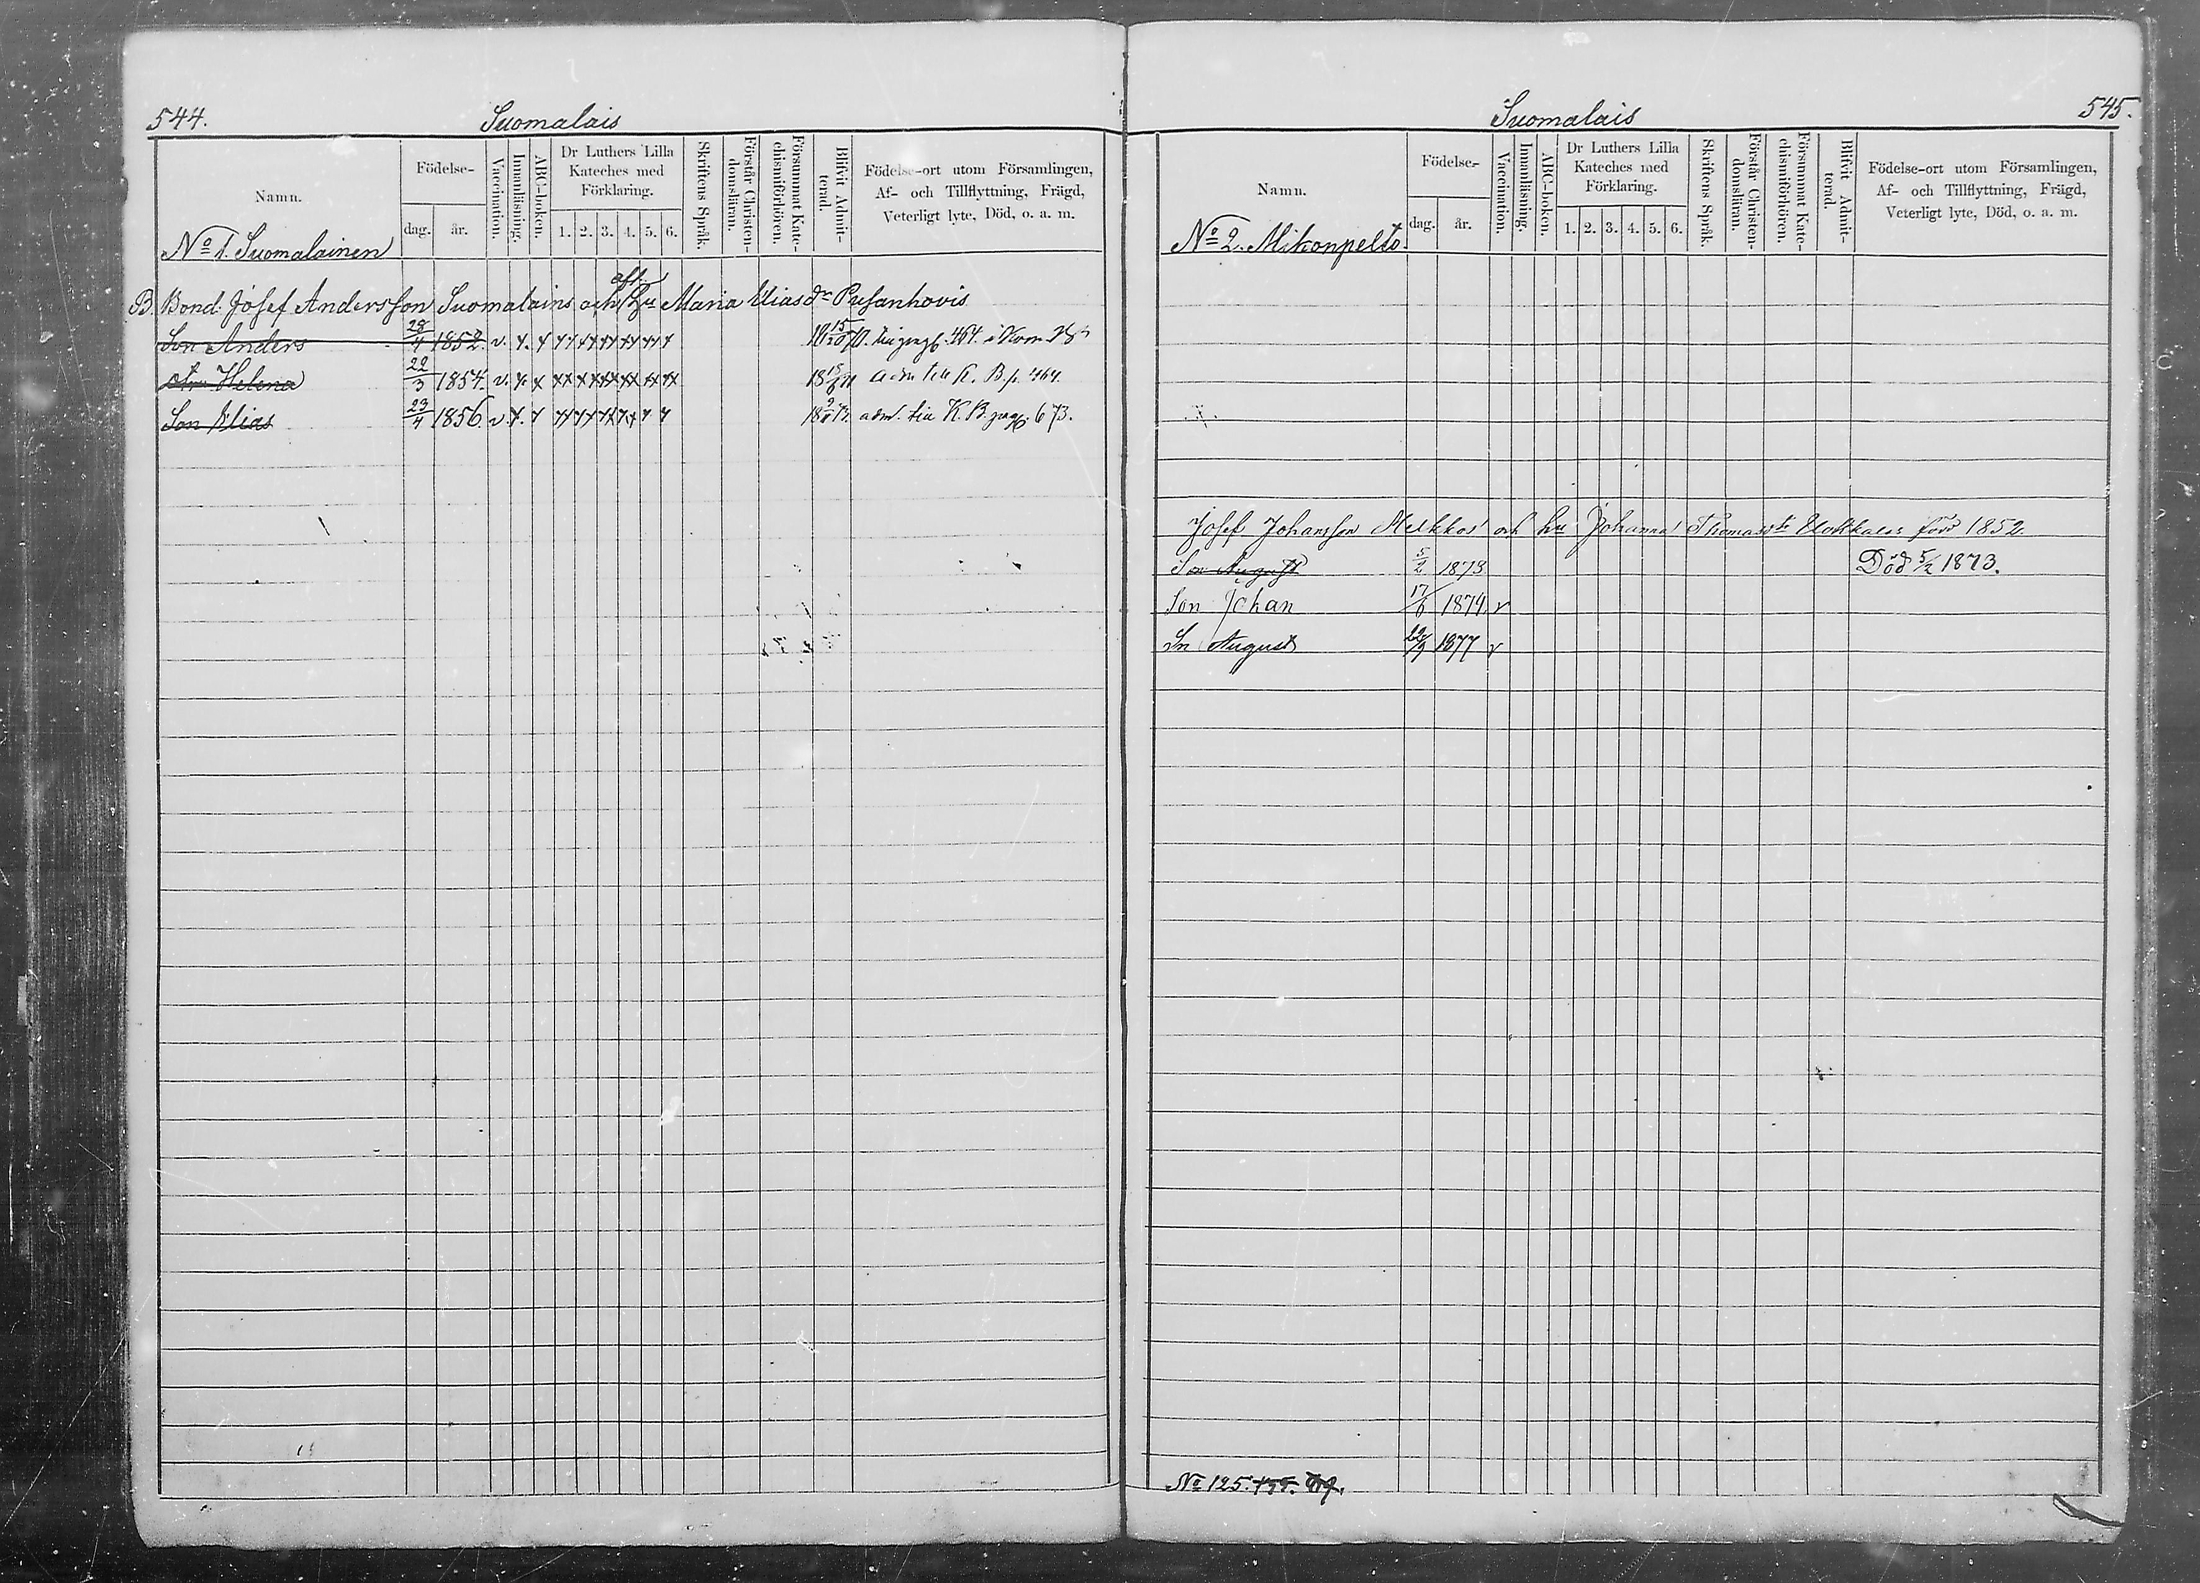 544.
Suomalais
Namn.
Födelse-
dag.
år.
Vaccination.
Innanläsning.
ABC-boken.
Dr Luthers Lilla
Kateches med
Förklaring.
1. 2. 3. 4. 5. 6.
Skriftens Språk.
Förstår Christen-
domsläran.
Försummat Kate-
chismiförhören.
Blifvit Admit-
terad.
Födelse-ort utom Församlingen,
Af- och Tillflyttning, Frägd,
Veterligt lyte, Död, o. a. m.
No 1. Suomalainen
B. Bond. Josef Andersson Suomalains och hu Maria Eliasdr
Son Anders 28/4 1852. v. x. x
Helena 22/3 1854. v. x. x adm till K. B. p. 464.
Son Elias 23/4 1856. v. x. x adm. till K. B. pag. 673.
Suomalais
545.
Namn.
Födelse-
dag.
år.
Vaccination.
Innanläsning.
ABC-boken.
Dr Luthers Lilla
Kateches med
Förklaring.
1. 2. 3. 4. 5. 6.
Skriftens Språk.
Förstår Christen-
domsläran.
Försummat Kate-
chismiförhören.
Blifvit Admit-
terad.
Födelse-ort utom Församlingen,
Af- och Tillflyttning, Frägd,
Veterligt lyte, Död, o. a. m.
No 2. Mikonpelto.
Josef Johansson och hu Johanna Thomasdr född 1852.
Son August 5/2 1873 Död 5/2 1873.
Son Johan 17/6 1874. v
Sn August 22/9 1877 v
No 125.